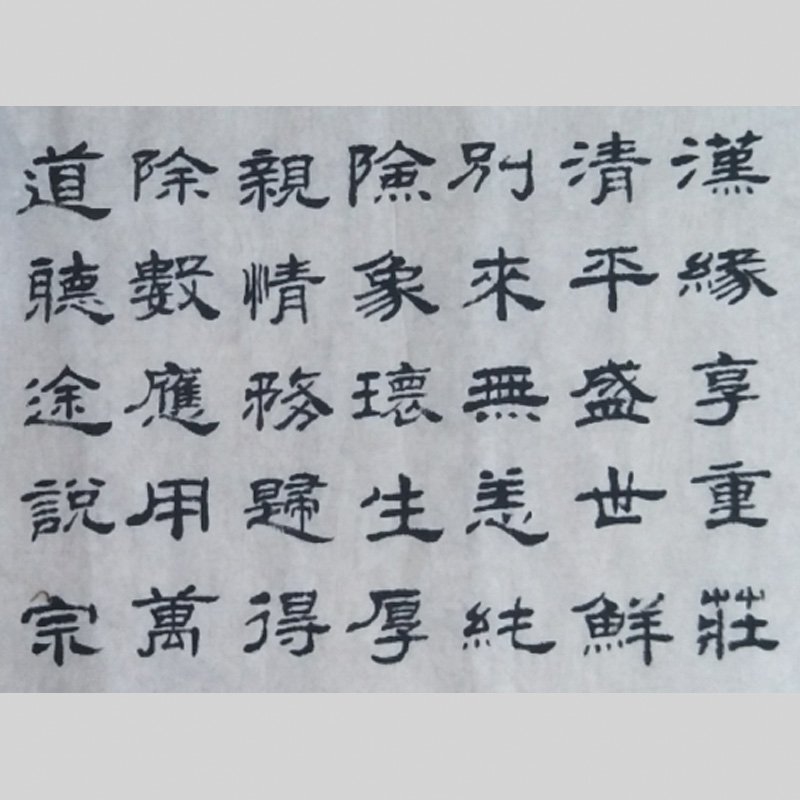 漢緣享重莊
清平盛世鮮
別來無恙純
險象環生厚
親情務歸得
除數應用萬
道聽途說宗